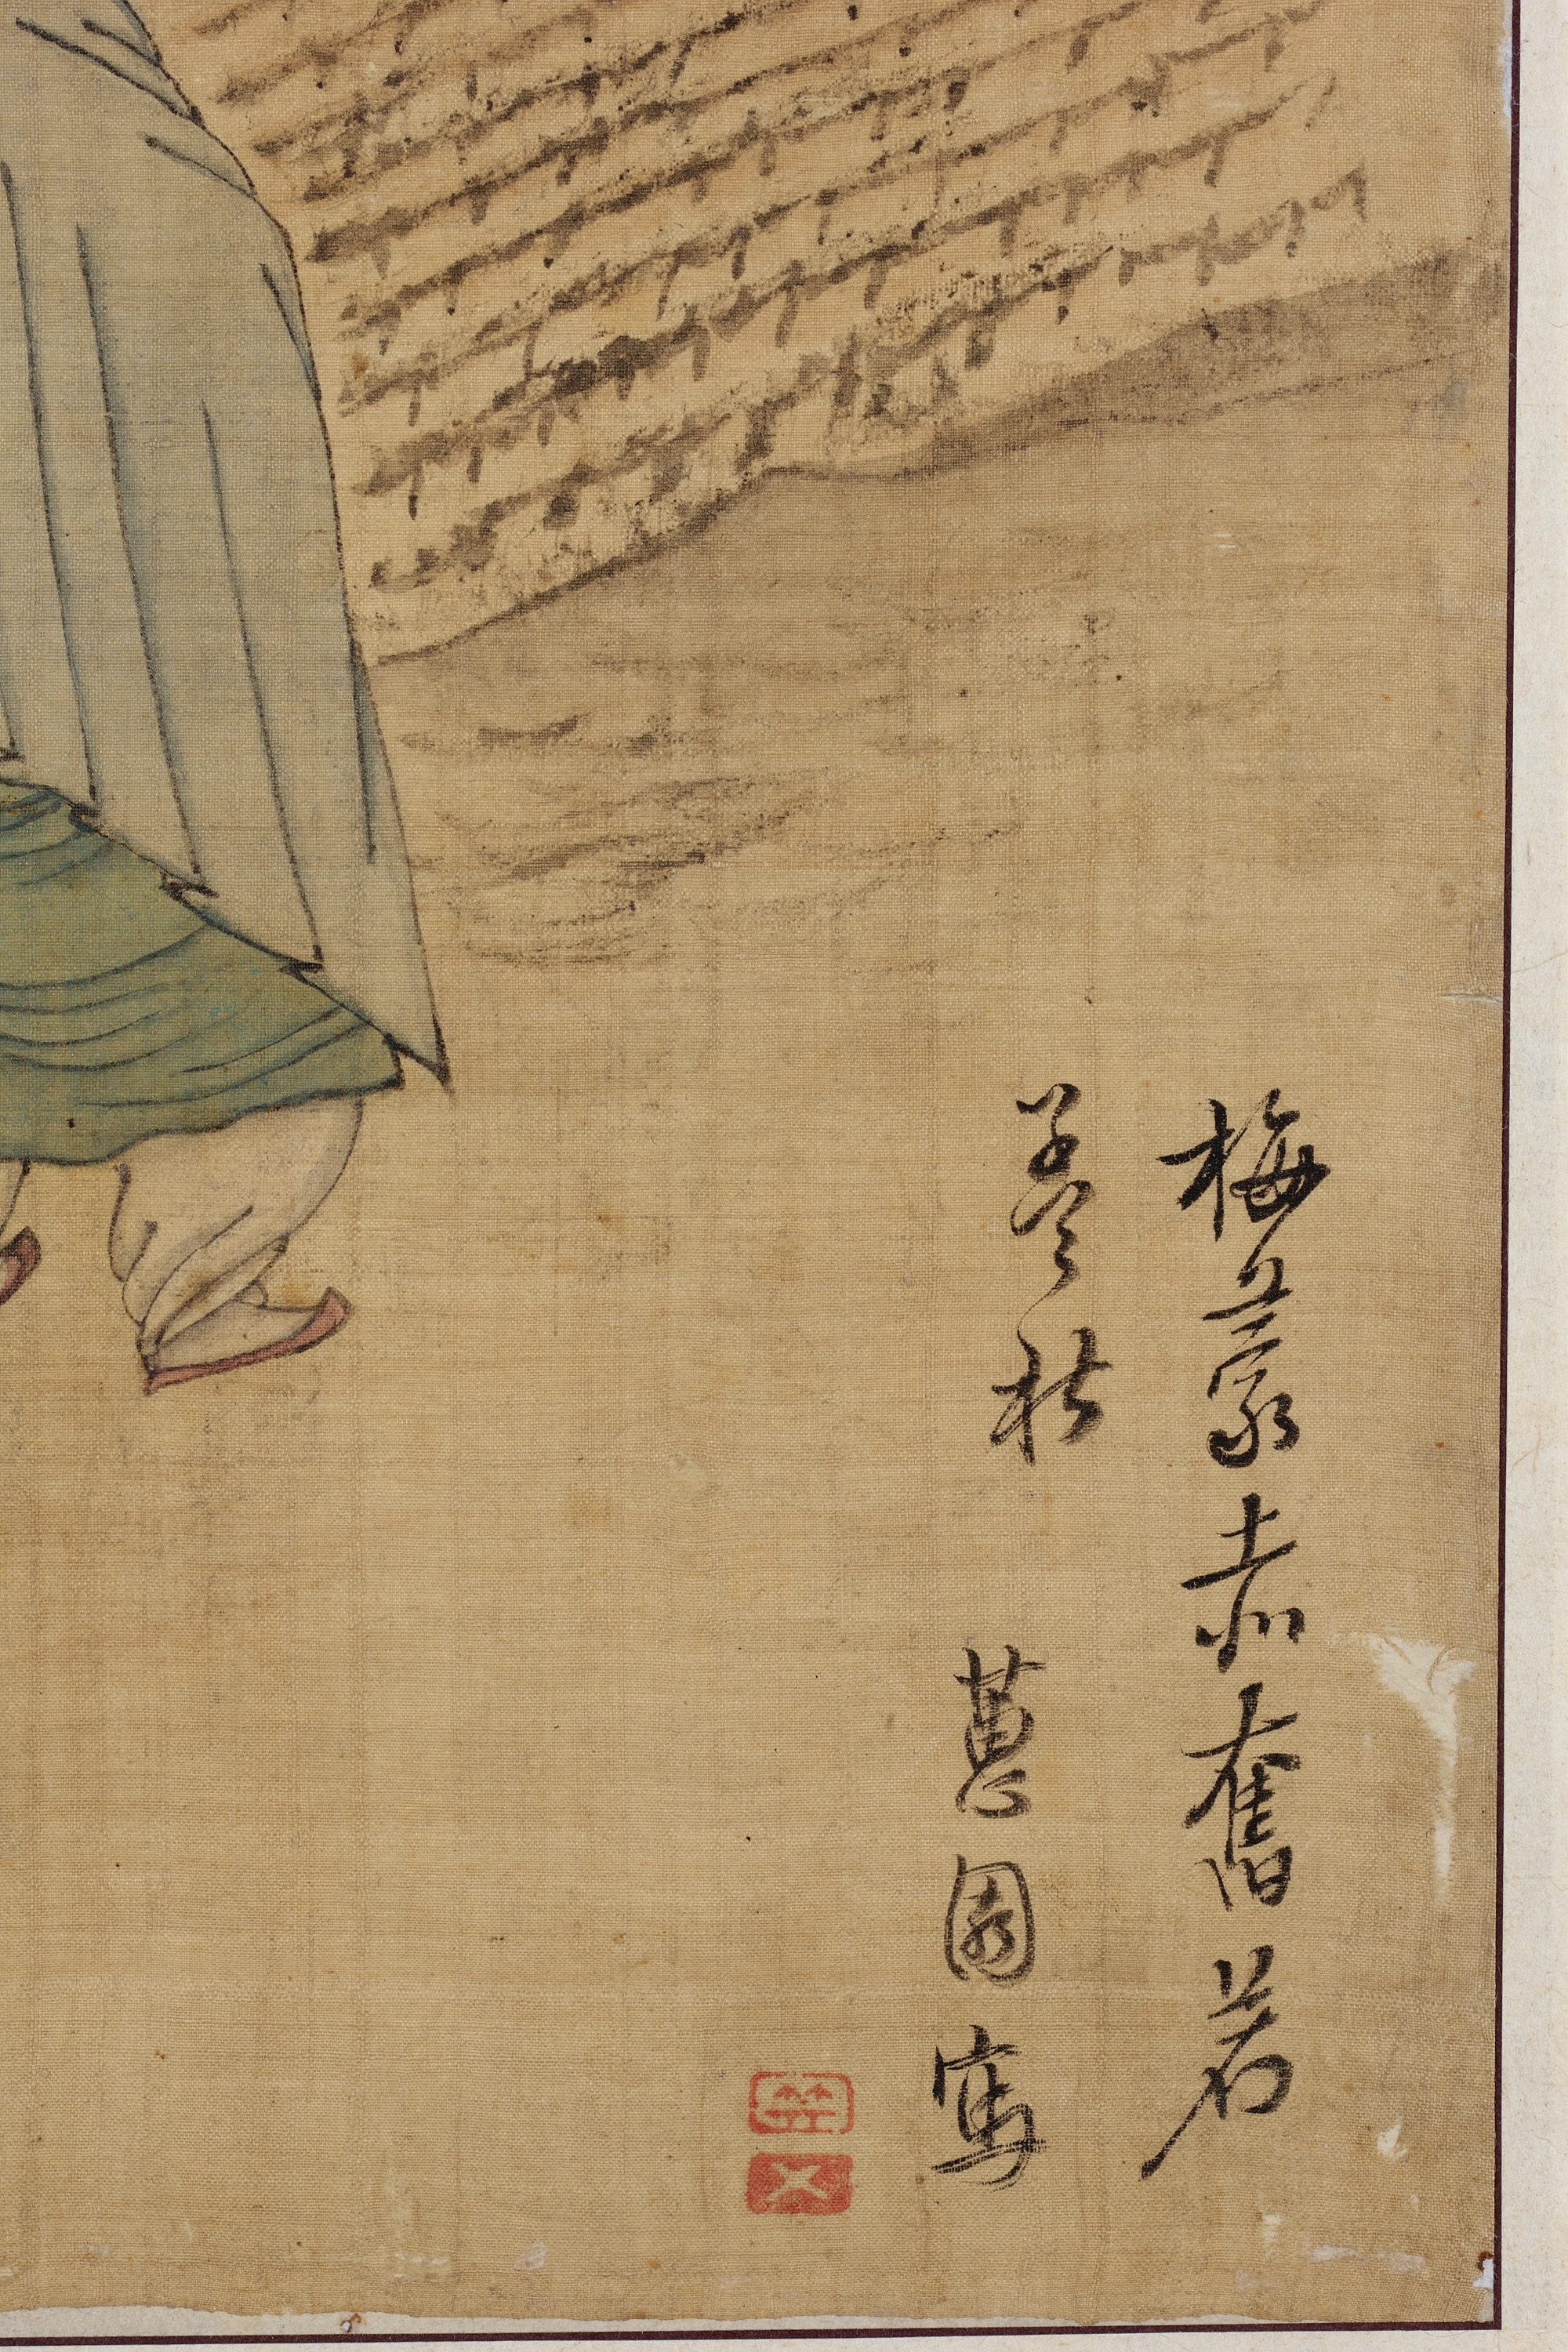 梅蒙赤奮若
孟秋 蕙園寫
笠
父